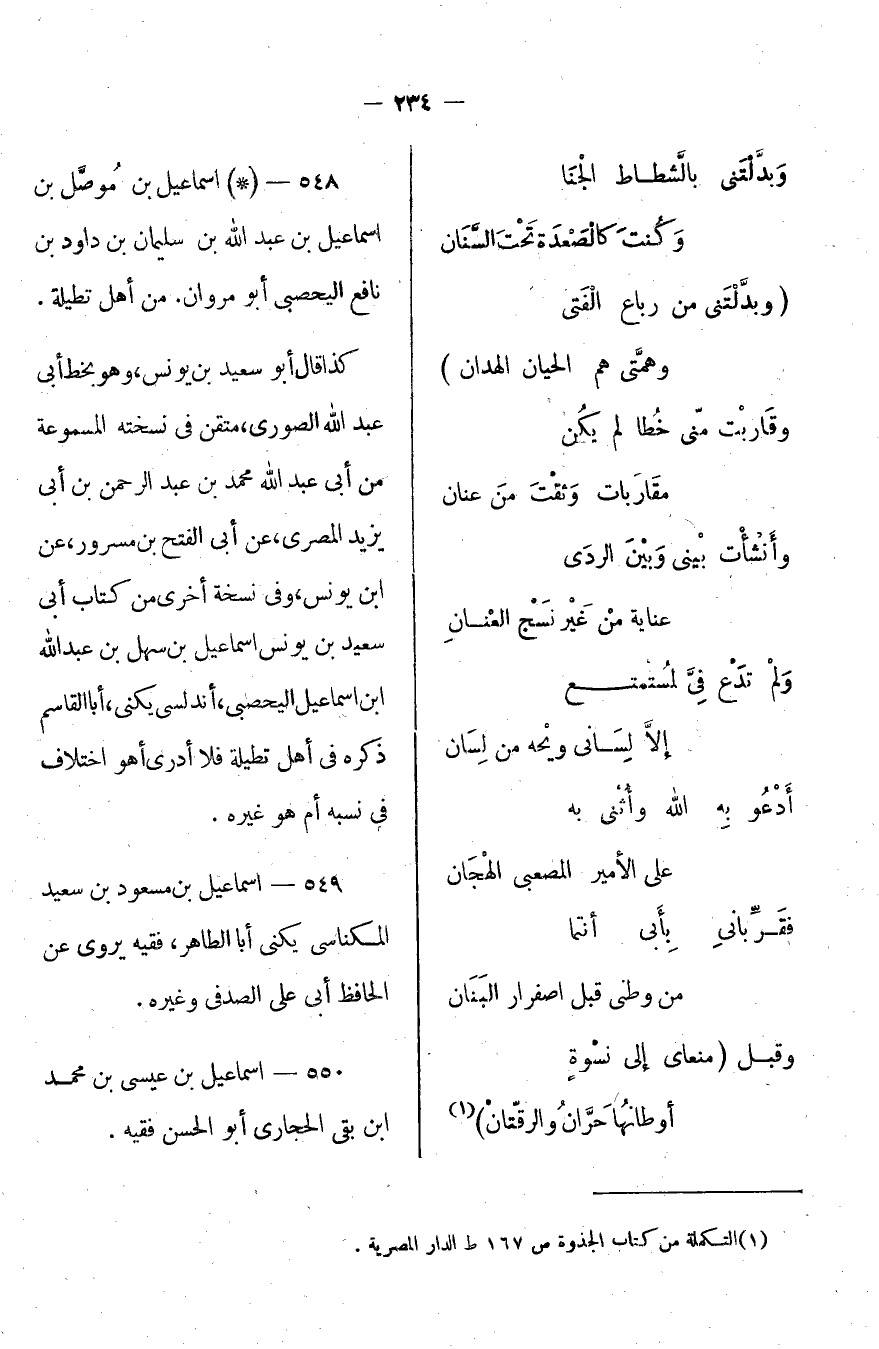 — ٢٣٤ —
وَبدَّلَتْنى بالَّشطـاط الْجنَا
وَكُنتَ كالْصَعْدَة تَحْتَ السَّنَان
( وبدَّلَتْنى من رباع الْفَتى
وهمَّتى هم الحيان الهدان )
وقَارَبْت منّى خُطا لم يَكُن
مقَارَبات وَثقْتَ منَ عنان
وأَنْشأْت بْينى وَبَيْنَ الردَى
عناية منْ غَيْر نَسْج العْنـانِ
وَلمْ تدَعْ فِىَّ لمُستْمتـــع
إلاَّ لِسَـانى ويْحه من لِسَان
أَدْعُو بِه الله وأُثْنى به
على الأمير المصعبى الْهجَان
فقَـرِّبانىِ بِأَبى أنتما
من وطنى قبل اصفرار البَنَان
وقبـل ( منعاى إلى نسْوةٍ
أوطانهُا حَرَّانُ والرقتّانْ )(١)
٥٤٨ — (*) اسماعيل بن مُوصَّل بن
اسماعيل بن عبد الله بن سليمان بن داود بن
نافع اليحصبى أبو مروان. من أهل تطيلة .
كذا قال أبو سعيد بن يونس، وهو بخط أبى
عبد الله الصورى، متقن فى نسخته المسموعة
من أبى عبد الله محمد بن عبد الرحمن بن أبى
يزيد المصرى، عن أبى الفتح بن مسرور، عن
ابن يونس، وفى نسخة أخرى من كتاب أبى
سعيد بن يونس اسماعيل بن سهل بن عبدالله
ابن اسماعيل اليحصبى، أندلسى يكنى، أبا القاسم
ذكره فى أهل تطيلة فلا أدرى أهو اختلاف
فى نسبه أم هو غيره .
٥٤٩ — اسماعيل بن مسعود بن سعيد
المـكناسى يكنى أبا الطاهر، فقيه يروى عن
الحافظ أبى على الصدفى وغيره .
٥٥٠ — اسماعيل بن عيسى بن محمـد
ابن بقى الحجارى أبو الحسن فقيه .
(١) التـكملة من كتاب الجذوة ص ١٦٧ ط الدار المصرية .